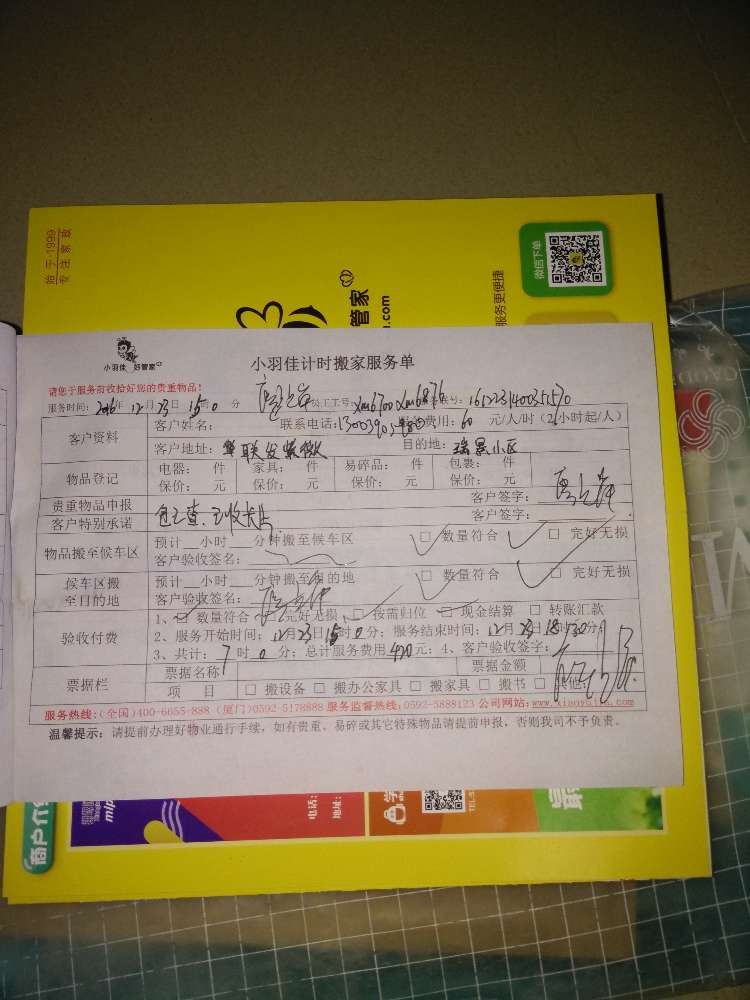 始于·1999
专注家政
微信下单
管家
服务更便捷
小羽佳 好管家
小羽佳计时搬家服务单
请您于服务前收拾好您的贵重物品!
服务时间: 2016年 12月 23日 15时 0分 员工工号: xm6700 xm6876
客户资料
客户姓名: 联系电话: 服务费用: 60 元/人/时(2小时起/人)
客户地址: 联发紫薇 目的地: 瑞景小区
物品登记
电器: 件 家具: 件 易碎品: 件 包裹: 件
保价: 元 保价: 元 保价: 元 保价: 元
贵重物品申报 客户签字:
客户特别承诺 客户签字:
物品搬至候车区
预计__小时__分钟搬至候车区 □ 数量符合 □ 完好无损
客户验收签名:
候车区搬至目的地
预计__小时__分钟搬至目的地 □ 数量符合 □ 完好无损
客户验收签名:
验收付费
1、□ 数量符合 □ 完好无损 □ 按需归位 □ 现金结算 □ 转账汇款
2、服务开始时间: 12月23日15时0分; 服务结束时间: 12月23日18时30分;
3、共计: 7时0分; 总计服务费用420元; 4、客户验收签字:
票据栏
票据名称 票据金额
项 目 □ 搬设备 □ 搬办公家具 □ 搬家具 □ 搬书 □ 其他:
服务热线:(全国)400-6655-888 (厦门)0592-5178888 服务监督热线:0592-5888123 公司网站:www.xiaoyujia.com
温馨提示: 请提前办理好物业通行手续, 如有贵重、易碎或其它特殊物品请提前申报, 否则我司不予负责。
商户介
电话:
地址: